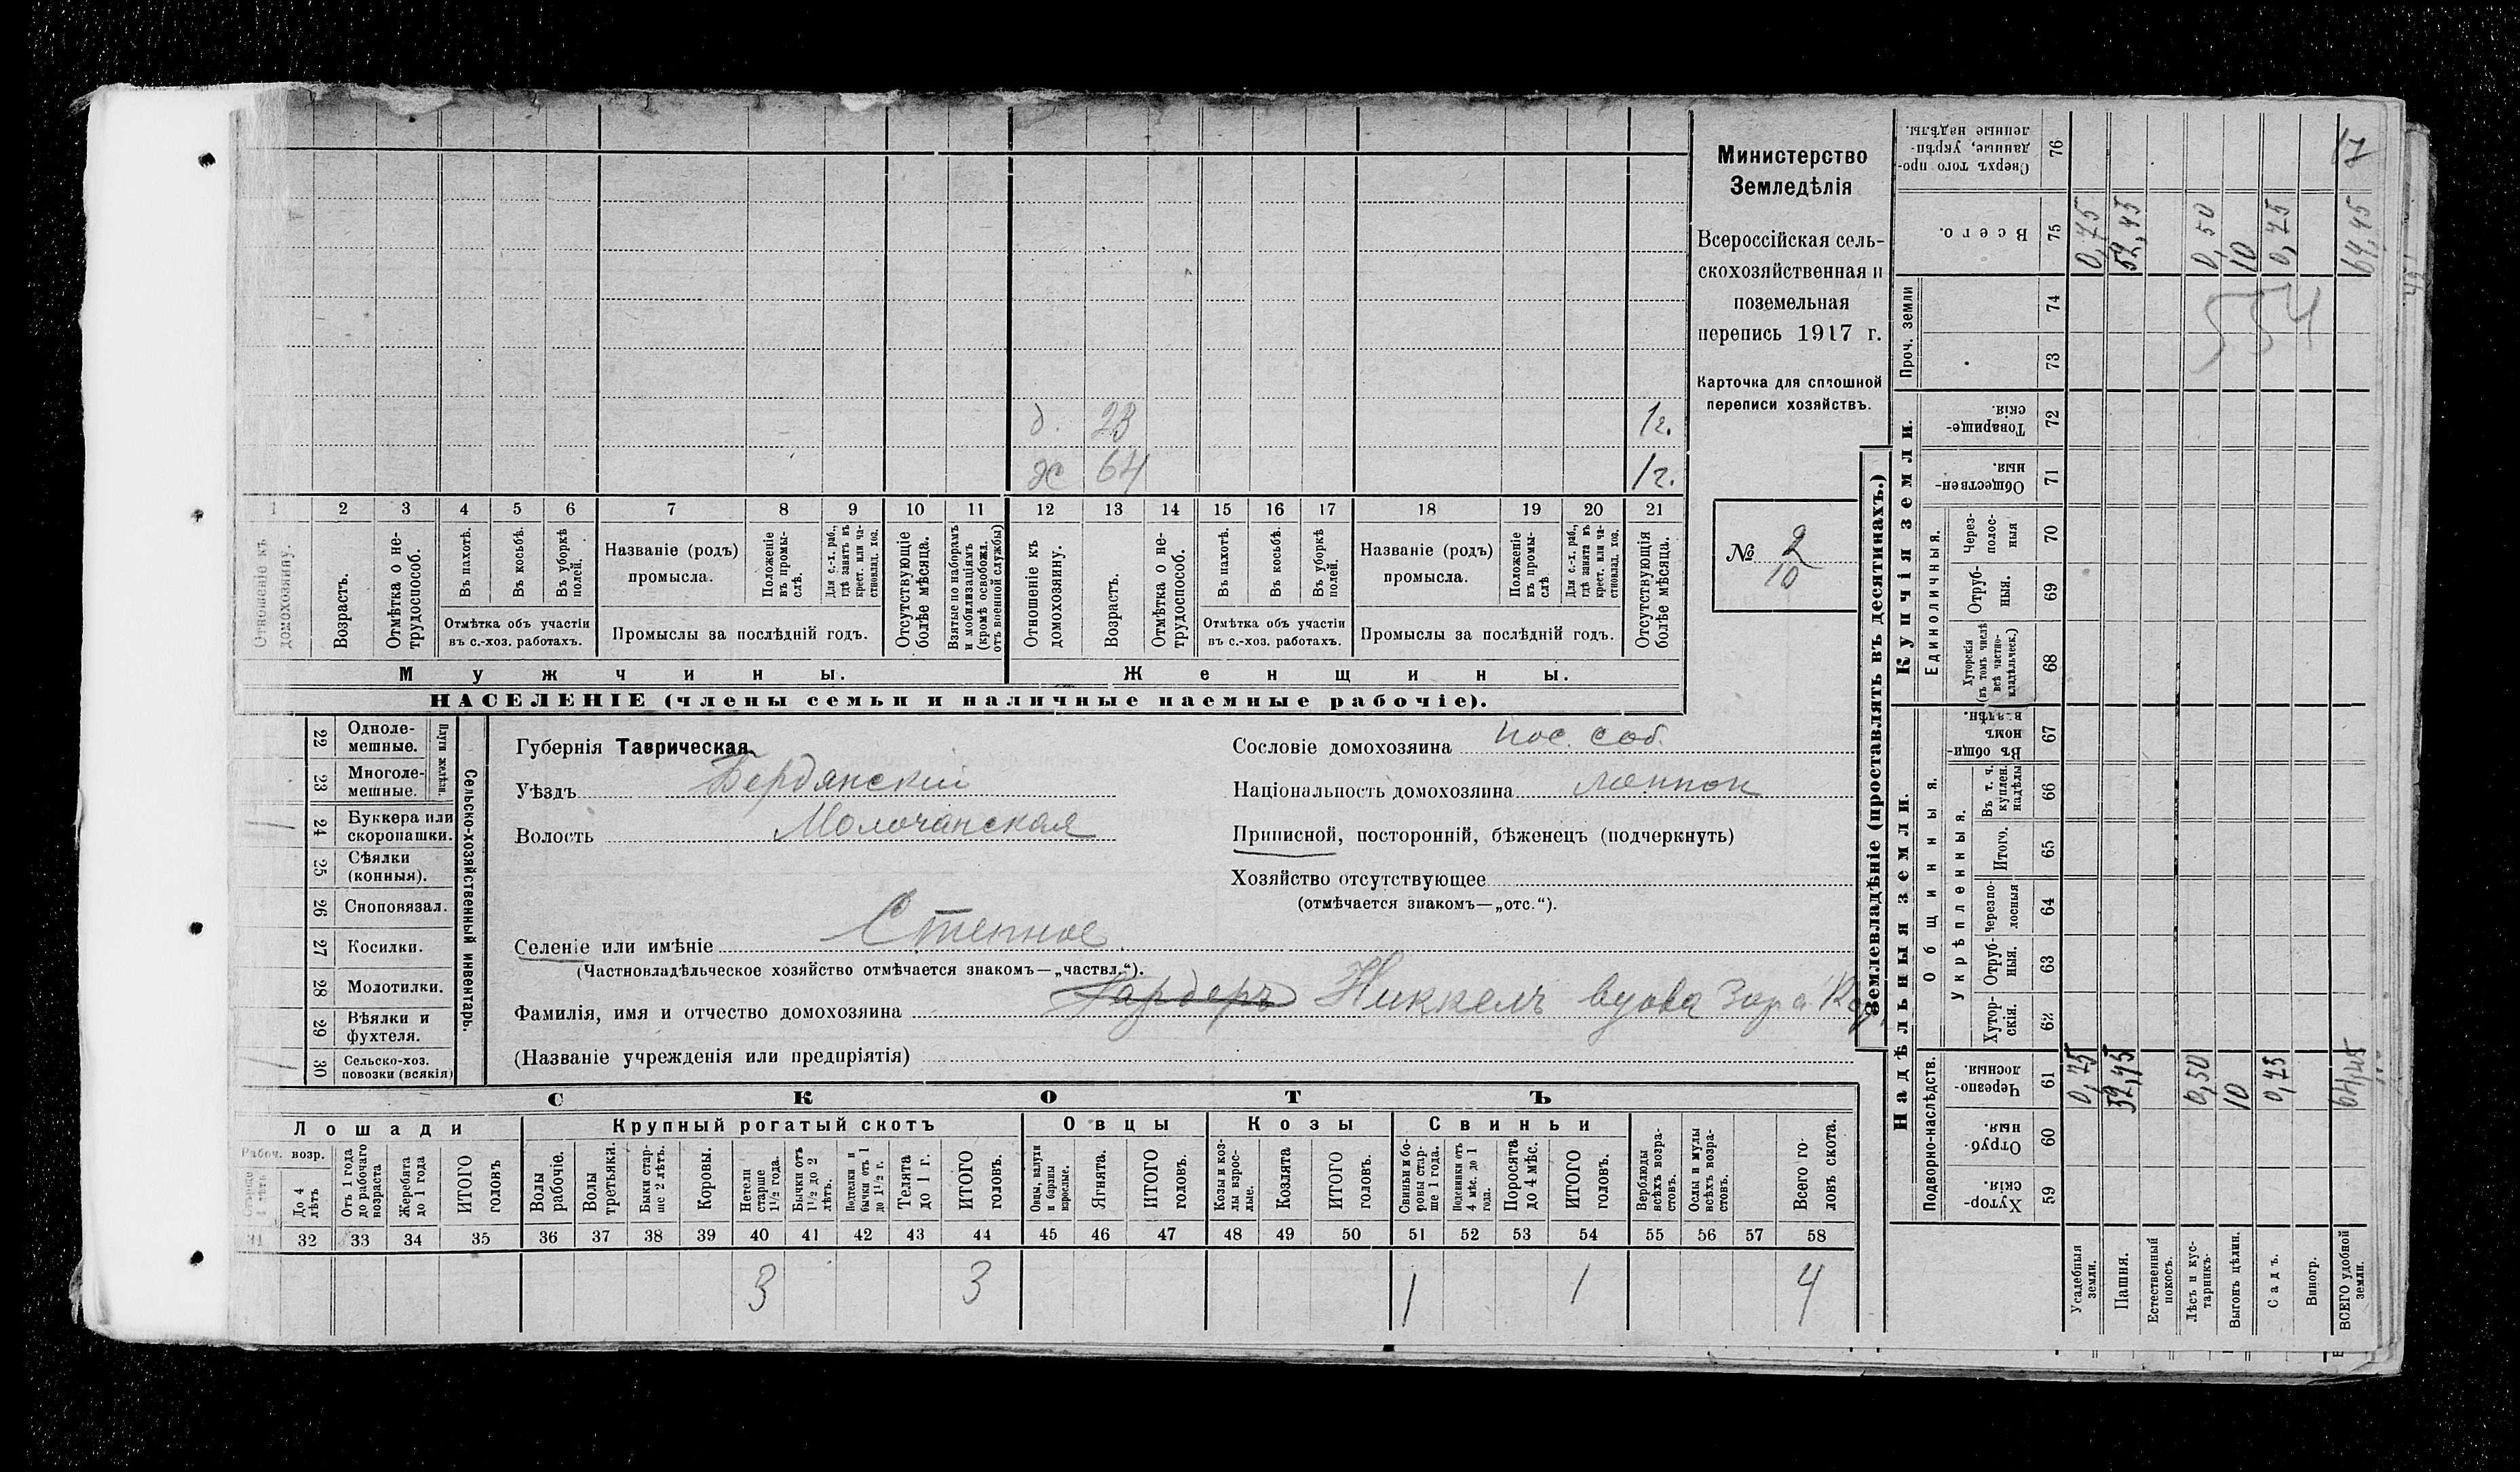 д. 23 1г.
ж 64 1г.
1 2 3 4 5 6 7 8 9 10 11 12 13 14 15 16 17 18 19 20 21
Отношеніе къ домохозяину.
Возрастъ.
Отмѣтка о не-
трудоспособ.
Въ пахотѣ.
Въ косьбѣ.
Въ уборкѣ
полей.
Отмѣтка объ участіи
въ с.-хоз. работахъ.
Названіе (родъ)
промысла.
Положеніе
въ промы-
слѣ.
Для с.-х. раб.,
гдѣ занятъ въ
крест. или ча-
стновлад. хоз.
Промыслы за послѣдній годъ.
Отсутствующіе
болѣе мѣсяца.
Взятые по наборамъ
и мобилизаціямъ
(кромѣ освобожд.
отъ военной службы)
Отношеніе къ
домохозяину.
Возрастъ.
Отмѣтка о не-
трудоспособ.
Въ пахотѣ.
Въ косьбѣ.
Въ уборкѣ
полей.
Отмѣтка объ участіи
въ с.-хоз. работахъ.
Названіе (родъ)
промысла.
Положеніе
въ промы-
слѣ
Для с.-х. раб.,
гдѣ занята въ
крест. или ча-
стновлад. хоз.
Промыслы за послѣдній годъ.
Отсутствующія
болѣе мѣсяца.
Мужчины.
Женщины.
НАСЕЛЕНІЕ (члены семьи и наличные наемные рабочіе).
Министерство
Земледѣлія
Всероссійская сель-
скохозяйственная и
поземельная
перепись 1917 г.
Карточка для сплошной
переписи хозяйствъ.
№ 2
10
22 Одноле-
мешные.
23 Многоле-
мешные.
Плуги желѣзн.
24 Буккера или
скоропашки.
25 Сѣялки
(конныя).
26 Сноповязал.
27 Косилки.
28 Молотилки.
29 Вѣялки и
фухтеля.
30 Сельско-хоз.
повозки (всякія)
Сельско-хозяйственный инвентарь.
Губернія Таврическая.
Уѣздъ Бердянскій
Волость Молочанская
Селеніе или имѣніе Степное
(Частновладѣльческое хозяйство отмѣчается знакомъ—„частвл.“).
Фамилія, имя и отчество домохозяина Гардеръ Никкель вдова
(Названіе учрежденія или предпріятія)
Сословіе домохозяина пос. соб.
Національность домохозяина меннон
Приписной, посторонній, бѣженецъ (подчеркнуть)
Хозяйство отсутствующее
(отмѣчается знакомъ—„отс.“).
СКОТЪ
Лошади
Крупный рогатый скотъ
Овцы
Козы
Свиньи
Рабоч. возр.
До 4
лѣтъ
Отъ 1 года
до рабочаго
возраста
Жеребята
до 1 года
ИТОГО
головъ
Волы
рабочіе.
Волы
третьяки.
Быки стар-
ше 2 лѣтъ.
Коровы.
Нетели
старше
1½ года.
Бычки отъ
1½ до 2
лѣтъ.
Подтелки и
бычки отъ 1
до 1½ г.
Телята
до 1 г.
ИТОГО
головъ.
Овцы, валухи
и бараны
взрослые.
Ягнята.
ИТОГО
головъ.
Козы и коз-
лы взрос-
лые.
Козлята
ИТОГО
головъ.
Свиньи и бо-
ровы стар-
ше 1 года.
Подсвинки отъ
4 мѣс. до 1
года.
Поросята
до 4 мѣс.
ИТОГО
головъ.
Верблюды
всѣхъ возра-
стовъ.
Ослы и мулы
всѣхъ возра-
стовъ.
Всего го-
ловъ скота.
31 32 33 34 35 36 37 38 39 40 41 42 43 44 45 46 47 48 49 50 51 52 53 54 55 56 57 58
3 3 1 1 4
Землевладѣніе (проставлять въ десятинахъ.)
Надѣльныя земли.
Купчія земли.
Проч. земли
Подворно-наслѣдств.
Общинныя.
Укрѣпленныя.
Единоличныя.
Сверхъ того про-
данные, укрѣп-
ленные надѣлы.
76
17
Всего.
75
0,75
52,45
0,50
10
0,75
64,45
74
554
73
Товарище-
скія.
72
Обществен-
ныя.
71
Через-
полос-
ныя
70
Отруб-
ныя.
69
Хуторскія
(въ томъ числѣ
всѣ частно-
владѣльческ.)
68
Въ общи-
номъ
владѣн.
67
Въ т. ч.
куплен.
надѣлы
66
Итого.
65
Черезпо-
лосныя
64
Отруб-
ныя.
63
Хутор-
скія.
62
Черезпо-
лосныя.
61
0,75
52,45
0,50
10
0,75
64,45
Отруб-
ныя.
60
Хутор-
скія.
59
Усадебныя
земли.
Пашня.
Естественный
покосъ.
Лѣсъ и кус-
тарникъ.
Выгонъ цѣлин.
Садъ.
Виногр.
ВСЕГО удобной
земли.